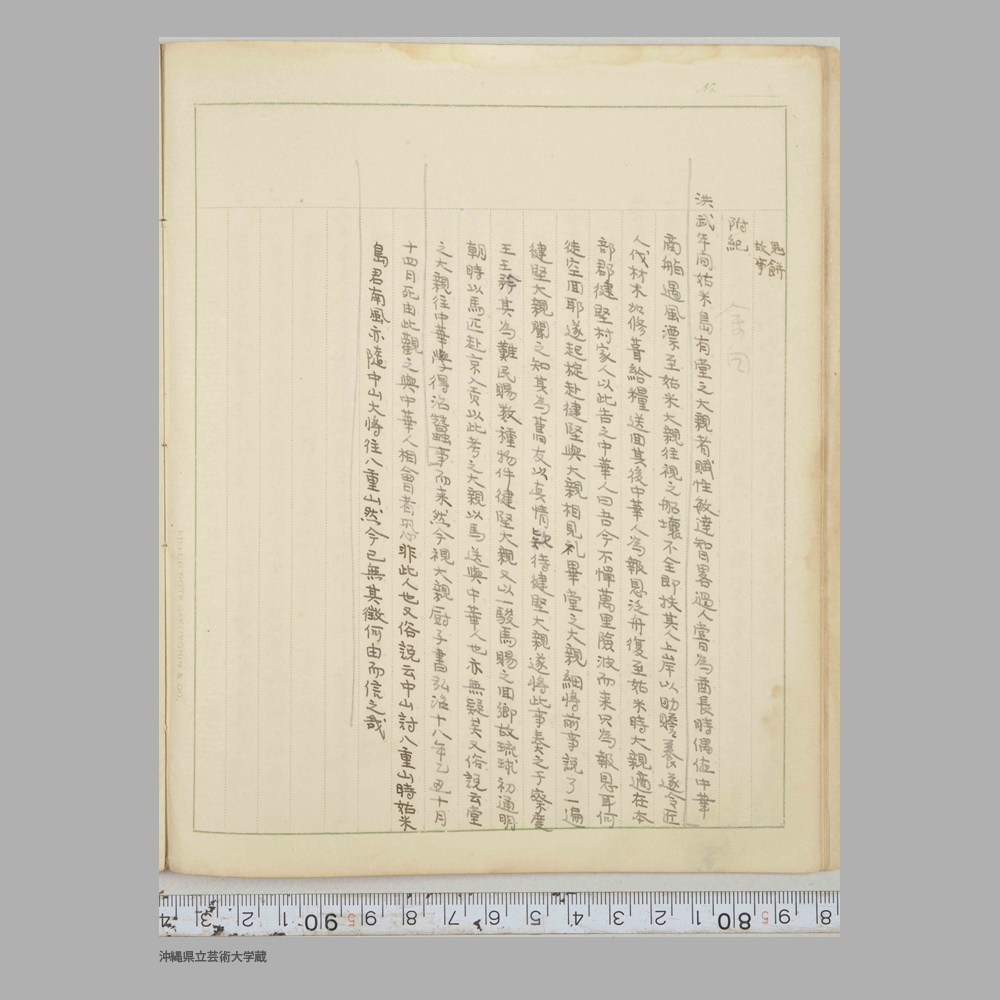 附紀
洪武年间姑米島有堂之大親者賦性敏達智畧過人嘗為酋長時偶値中華
商船遇風漂至姑米大親往視之船壞不全即扶其人上岸以助贍養遂令匠
人伐材木加修葺給糧送回其後中華人為報恩泛舟復至姑米時大親適在本
部郡徤堅村家人以此告之中華人曰吾今不憚萬里險波而来只為報恩耳何
徒空回耶遂起椗赴徤堅與大親相見礼畢堂之大親細將前事說了一遍
徤堅大親聞之知其為舊友以真情欵待徤堅大親遂將此事奏之于察度
王王矜其為難民賜数種物件徤堅大親又以一駿馬賜之回鄉故琉球初通明
朝時以馬匹赴京入贡以此考之大親以馬送與中華人也亦無疑矣又俗說云堂
之大親往中華學得治蠶事而来然今視大親厨子書弘治十八年乙丑十月
十四日死由此觀之與中華人相會者恐非此人也又俗說云中山討八重山時姑米
島君南風亦隨中山大將往八重山然今已無其徵何由而信之哉
沖縄県立芸術大学蔵